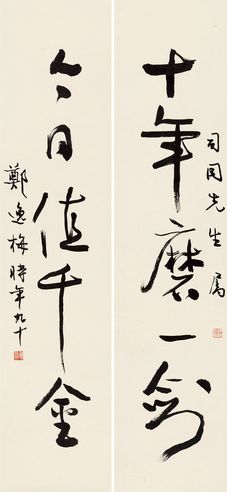 司同先生属
十年磨一剑
今日值千金
郑逸梅时年九十